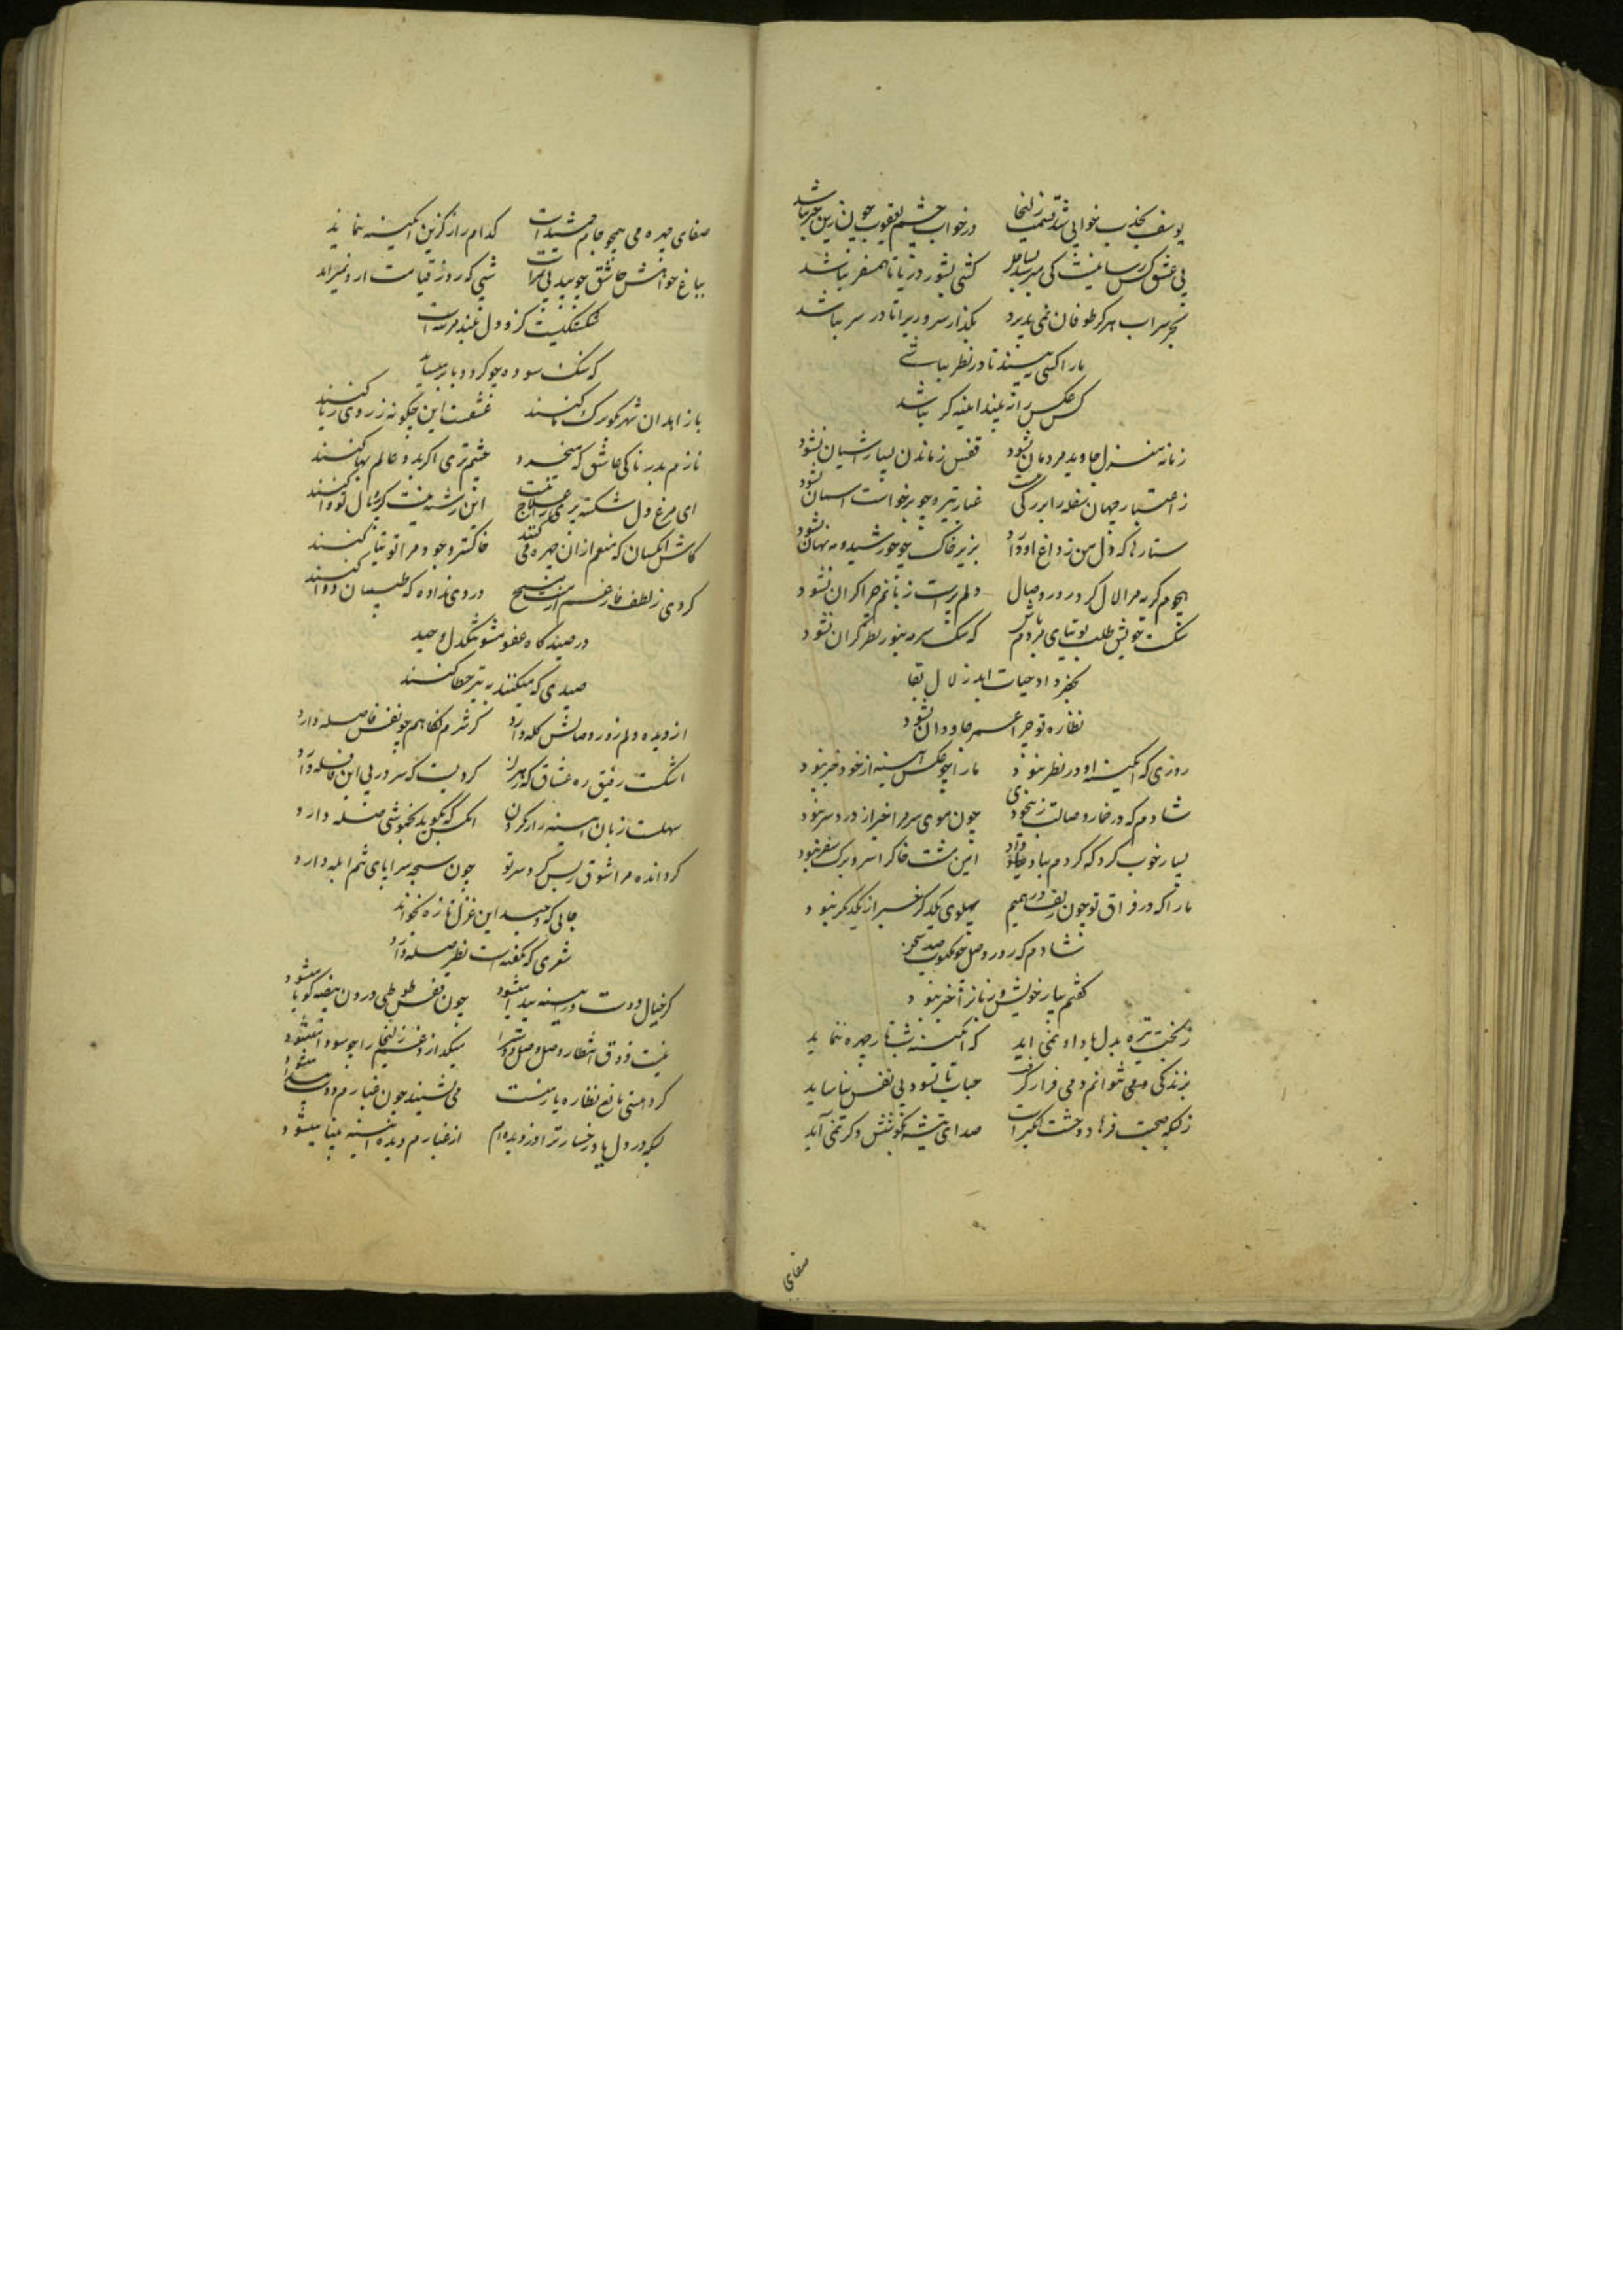 یوسف بجذب خوابی شد قسمت زلیخا در خواب چشم یعقوب چون ازین خبر نباشد
بی عشق کس رسا نیست کی میرسد بساحل کشتی بشور دریا تا همسفر نباشد
بحر سراب هرگز طوفان نمی پذیرد بگذار سرور یرا تا در سر نباشد
ما را کسی نبیند تا در نظر نباشی
کس عکس را نه بیند آینه گر نباشد
زمانه منزل جاوید مردمان نشود قفس زماندن بسیار آشیان نشود
ز اعتبار جهان سفله را بزرگی نیست غبار تیره چو برخواست آسمان نشود
ستارها که دل من ز داغ او دارد بزیر خاک چو خورشید و مه نهان نشود
هجوم گریه مرا لال کرد روز وصال دلم پرست زبانم چرا گران نشود
شکست خویش طلب توتیای مردم باش که سنگ سرمه بنور نظر گران نشود
بخضر داد حیات ابد زلال بقا
نظاره تو چرا عمر جاودان نشود
روزی که آیینه او در نظر نبود ما را چو عکس آینه از خود خبر نبود
شادم که در خمار وصالت ز بیخودی چون موی سر مرا خبر از درد سر نبود
بسیار خوب کرد که گردم بباد داد این مشت خاک را سر و برگ سفر نبود
ما را که در فراق تو چون زلف درهمیم پهلوی یکدگر خبر از یکدگر نبود
شادم که روز وصل چو مکتوب صد سخن
گفتم بیار خویش و زبانرا خبر نبود
ز بخت تیره بدل ها داد نمی آید که آیینه شب تار چهره ننماید
بزندگی دمی نتوانم دمی قرار گرفت حباب تا نشود بی نفس نیاساید
ز بسکه صحبت فرهاد وحشت انگیز است صدای تیشه بگوشش دگر نمی آید
صفای
صفای چهره می همچو جام جمشید است کدام راز کزین آیینه ننماید
بباغ خواهش عاشق چو بید بی ثمر است شبی که روز قیامت ازو نمیزاید
شکستگیست کزو دل بلند مرتبه است
که سنگ سوده چو گردد ببار می‌آید
با زاهدان شهر بگو ترک ما کنند عشقست این چگونه ز روی ریا کنند
نازم بدرناکی عاشق که میخرد چشم تری اگر بدو عالم بها کنند
ای مرغ دل شکسته پری را علاج نیست این رشته نیست کز پر و بال تو وا کنند
کاش آنکسان که منعم ازان چهره می کنند خاکستر وجود مرا توتیا کنند
کردی ز لطف فارغم از ننگ مسیح دردی نداده که طبیبان دوا کنند
در صیدگاه عفو مشو تنگدل وحید
صیدی که میکنند به تیر خطا کنند
از دیده دلم روز وصالش گله دارد کز شرم نگاهم چو نفس فاصله دارد
اشکست رفیق ره عشاق که هر یک گردیست که سر در پی این قافله دارد
سهلست زبان آینه راز کردن آنکس که نگوید بخموشی صله دارد
گردانده مرا شوق ز بس گرد سر تو چون سبحه سراپای تنم آبله دارد
جائی که وحید این غزل تازه بخواند
شعری که نگفته است نظیر صله دارد
گر خیال دوست در آیینه پیدا میشود چون قفس طوطی درون بیضه گویا میشود
نیست ذوق انتظار وصل وصل دوست را میگدازد غم زلیخا را چو سودا میشود
گرد هستی مانع نظاره یار منست می نشیند چون غبارم دوست پیدا میشود
بسکه در دل یاد رخسار ترا دزدیده ام از غبارم دیده آیینه بینا میشود